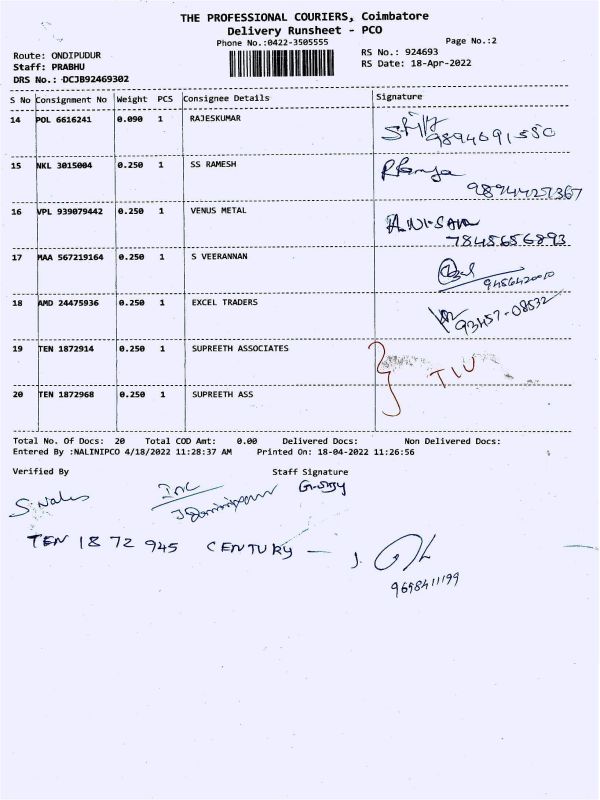 THE PROFESSIONAL COURIERS, Coimbatore
Delivery Runsheet - PCO
Phone No.:0422-3505555
Page No.:2
Route: ONDIPUDUR
RS No.: 924693
Staff: PRABHU
RS Date: 18-Apr-2022
DRS No.: DCJB92469302
S No Consignment No Weight PCS Consignee Details Signature
14 POL 6616241 0.090 1 RAJESKUMAR
9894691550
15 NKL 3015004 0.250 1 SS RAMESH
16 VPL 939079442 0.250 1 VENUS METAL
7845656893
17 MAA 567219164 0.250 1 S VEERANNAN
9456420010
18 AMD 24475936 0.250 1 EXCEL TRADERS
93457-08532
19 TEN 1872914 0.250 1 SUPREETH ASSOCIATES
20 TEN 1872968 0.250 1 SUPREETH ASS
Total No. Of Docs: 20 Total COD Amt: 0.00 Delivered Docs: Non Delivered Docs:
Entered By :NALINIPCO 4/18/2022 11:28:37 AM Printed On: 18-04-2022 11:26:56
Verified By Staff Signature
TEN 18 72 945 CENTURY — J.
9698411199